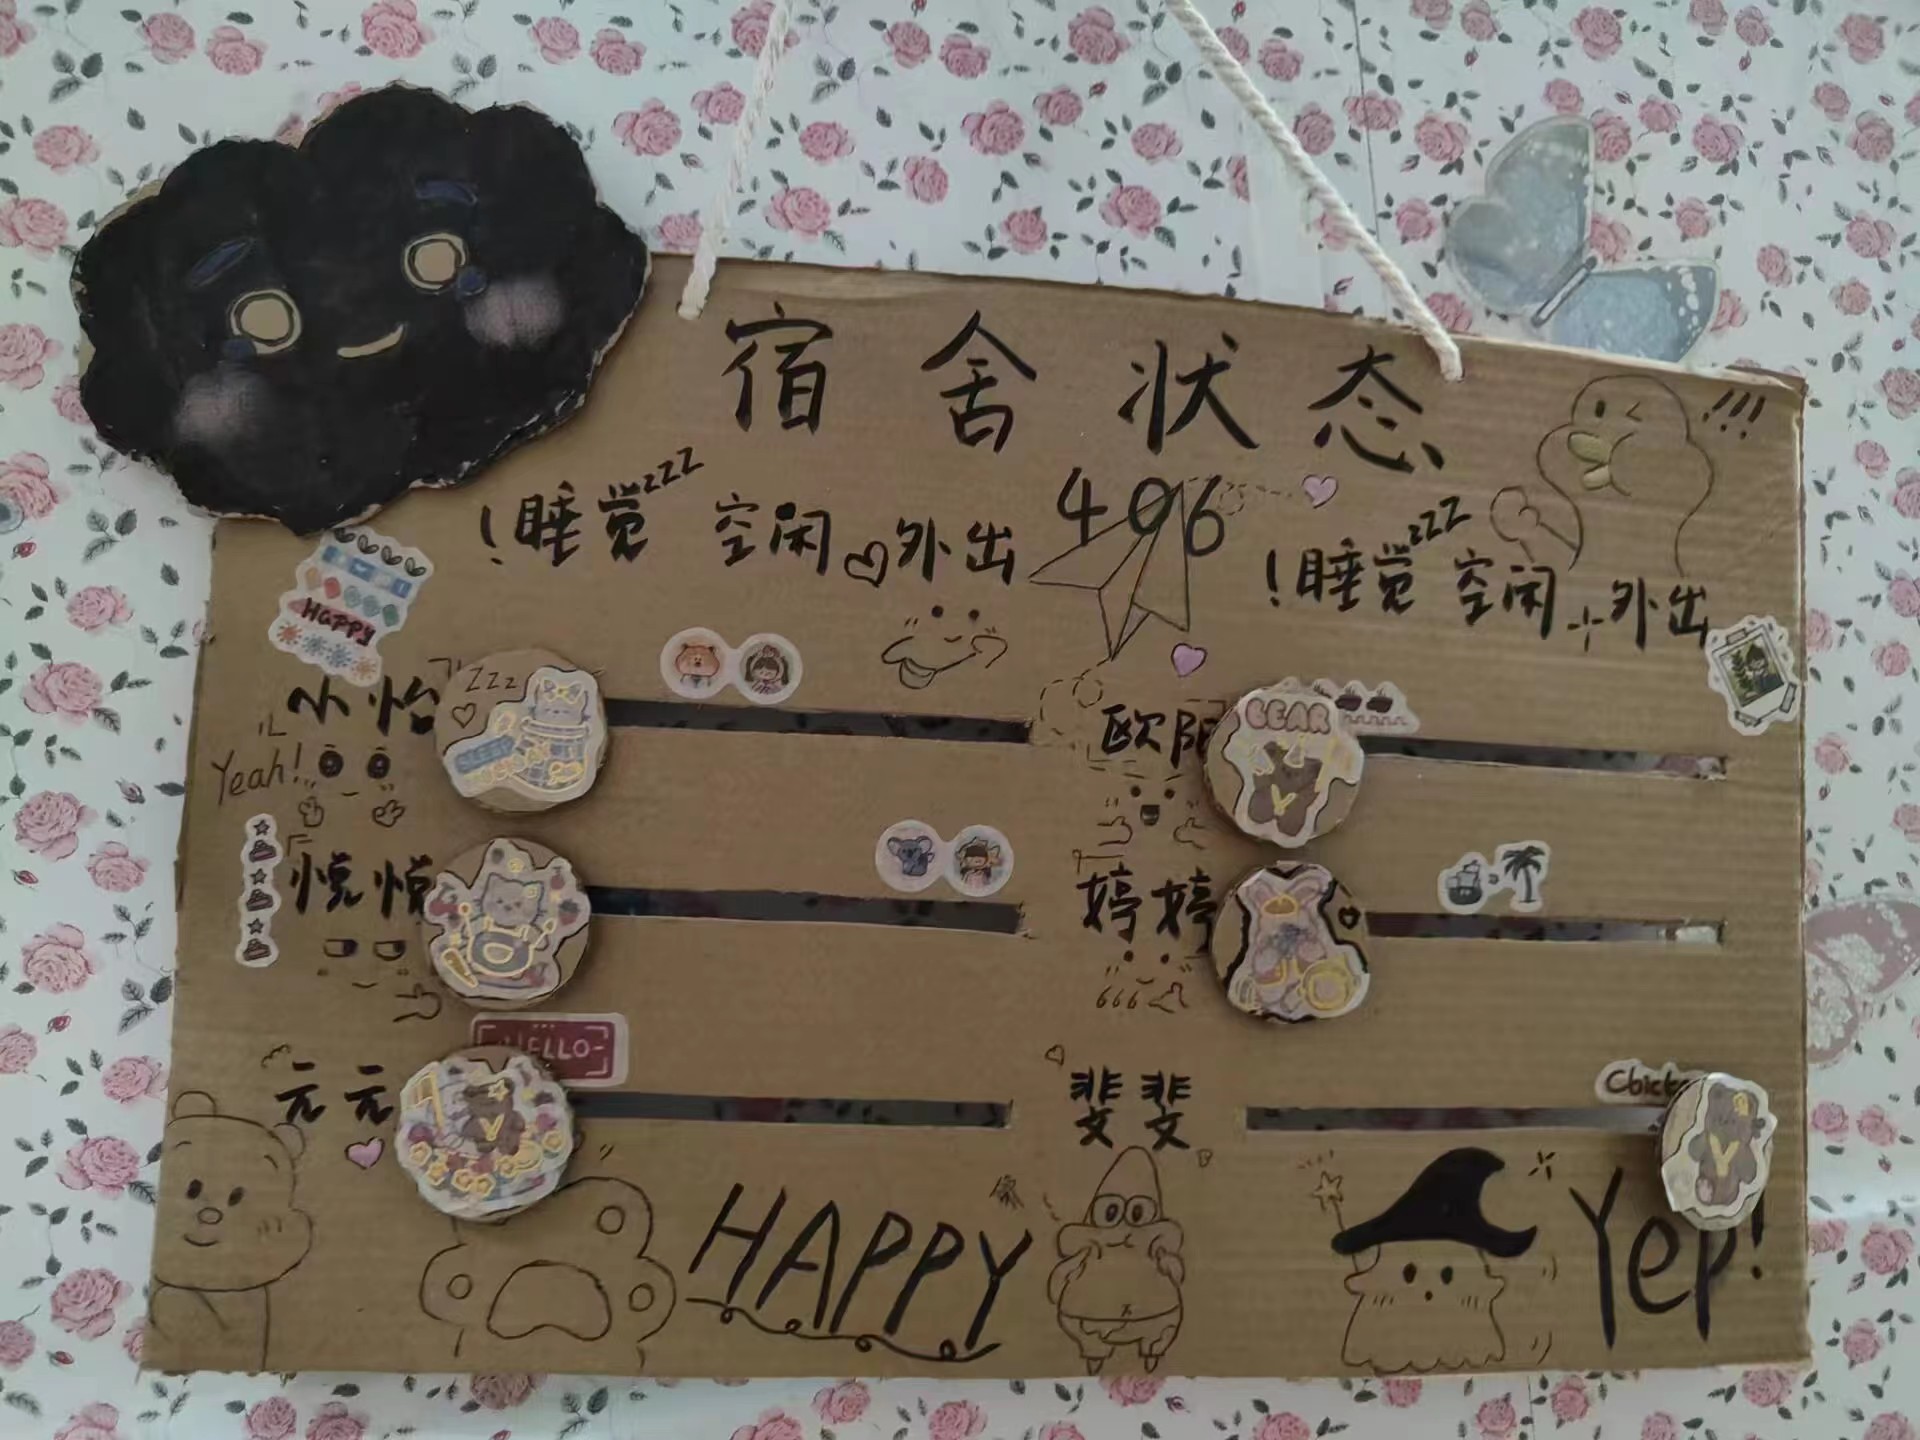 宿舍状态
406
!睡觉zzz 空闲 外出
!睡觉zzz 空闲 外出
Happy
小怡
zzz
SLEEP
Yeah!
欧阳
BEAR
悦悦
婷婷
666
HELLO
元元
斐斐
HAPPY
Yep!